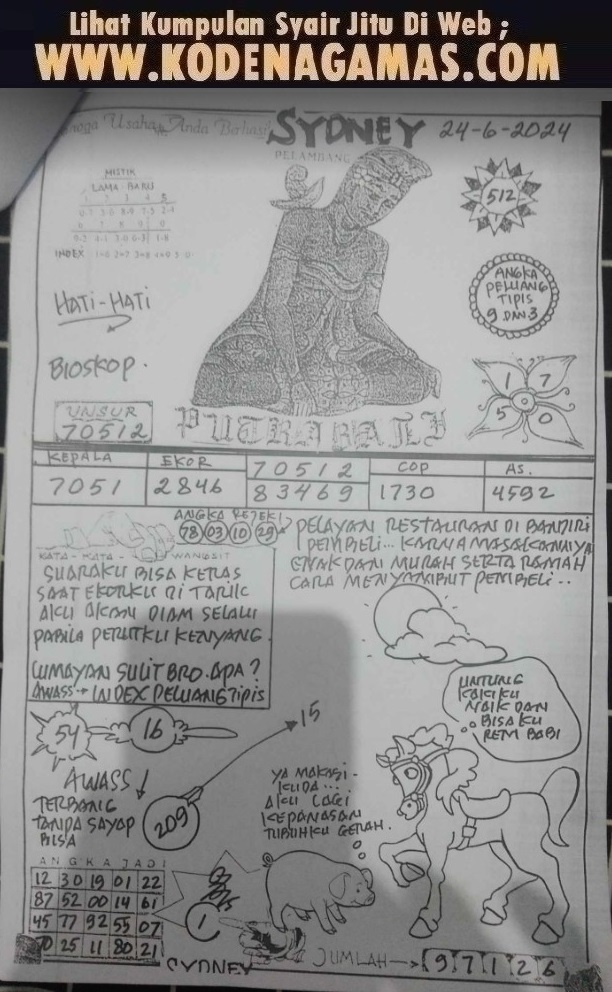 Lihat Kumpulan Syair Jitu Di Web ;
WWW.KODENAGAMAS.COM
Usaha Anda Berhasil
SYDNEY 24-6-2024
PELAMBANG
MISTIK
LAMA - BARU
INDEX
512
ANGKA
PELUANG
TIPIS
9 DAN 3
HATI-HATI
BIOSKOP.
UNSUR
70512
PUTRA BALI
1 7
5 0
KEPALA EKOR 70512 COP AS.
7051 2846 83469 1730 4592
ANGKA REJEKI
78 03 10 29
KATA - KATA - WANGSIT
SUARAKU BISA KERAS
SAAT EKORKU DI TARIK
AKU AKAN DIAM SELALU
PABILA PERUTKU KENYANG
LUMAYAN SULIT BRO. APA?
AWASS INDEX PELUANG TIPIS
PELAYAN RESTAURAN DI BANJIRI
PEMBELI... KARNA MASAKANNYA
ENAK DAN MURAH SERTA RAMAH
CARA MENYAMBUT PEMBELI..
UNTUNG
KAKIKU
NAIK DAN
BISA KU
REM BABI
54 16
15
AWASS!
TERBANG
TANPA SAYAP
BISA
209
YA MAKASI-
KUDA...
AKU LAGI
KEPANASAN
TUBUHKU GERAH.
ANGKA JADI
12 30 19 01 22
87 52 00 14 61
45 77 92 55 07
70 25 11 80 21
1
SYDNEY
JUMLAH → 9 7 1 2 6